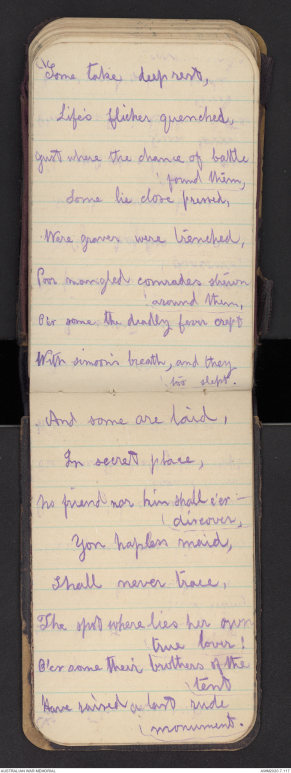 "Some take deep rest,
Life's flicker quenched,
Just where the chance of battle
found them,
Some lie close pressed,
Were graves were trenched,
Poor mangled comrades strewn
around them,
O'er some the deadly fever crept
With simoon's breath, and they
too slept.
And some are laid,
In secret place,
No friend nor kin shall e'er
discover,
Yon hapless maid,
Shall never trace,
The spot where lies her own
true lover!
O'er some their brothers of the
tent
Have raised a last rude
monument.
AUSTRALIAN WAR MEMORIAL